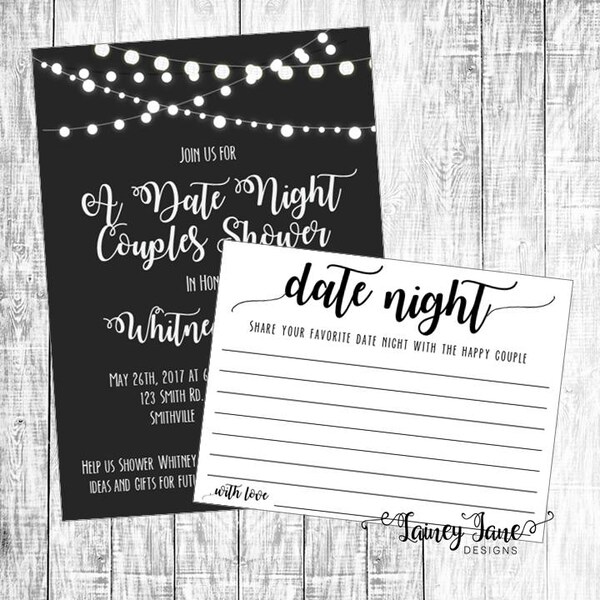 Join us for
A Date Night
Couples Shower
In Hono
Whitne
May 26th, 2017 at 6
123 Smith Rd.
Smithville
Help us Shower Whitney
ideas and gifts for futu
date night
Share your favorite date night with the happy couple
with love
Lainey Jane
DESIGNS